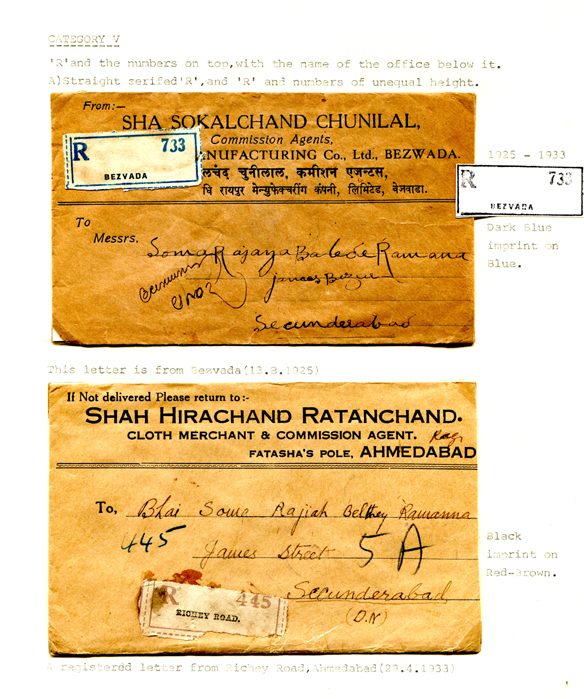 CATEGORY V
'R'and the numbers on top,with the name of the office below it.
A)Straight serifed'R',and 'R' and numbers of unequal height.
From:—
SHA SOKALCHAND CHUNILAL,
Commission Agents,
NUFACTURING Co., Ltd., BEZWADA.
लचंद चुनीलाल, कमीशन एजन्टस,
धि रायपुर मेन्युफेक्चरींग कंपनी, लिमिटेड, बेजवाडा.
R 733
BEZVADA
1925 - 1933
R 733
BEZVADA
Dark Blue
imprint on
Blue.
To
Messrs.
Soma Rajaya Ramana
Secunderabad
This letter is from Bezvada(13.8.1925)
If Not delivered Please return to:-
SHAH HIRACHAND RATANCHAND.
CLOTH MERCHANT & COMMISSION AGENT.
FATASHA'S POLE, AHMEDABAD
To, Bhai Soma Rajiah Ramanna
445 James Street 5A
Secunderabad
(D.N)
R 445
RICHEY ROAD,
Black
imprint on
Red-Brown.
A registered letter from Richey Road,Ahmedabad(29.4.1933)